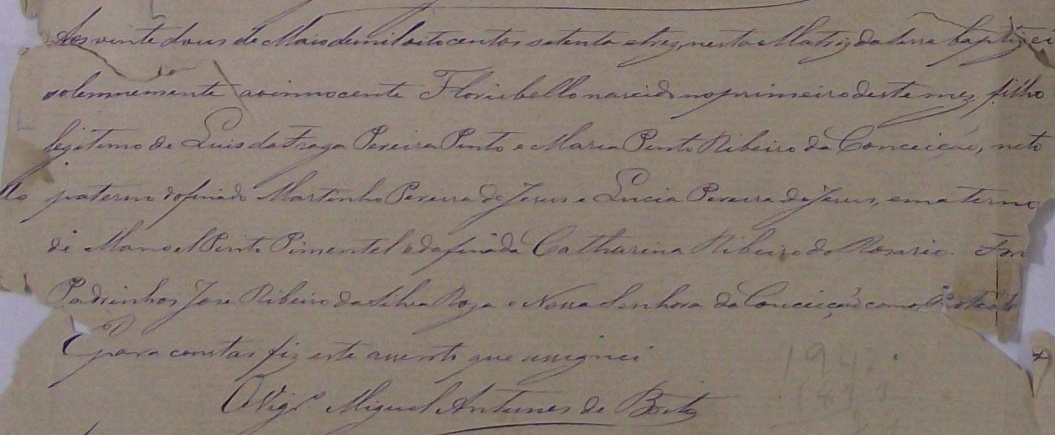 Aos vinte dous de Maio de mil oito centos setenta e trez, nesta Matriz da Serra baptizei
solemnemente ao innocente Florisbello nascido no primeiro deste mez, filho
legitimo de Luis da Fraga Pereira Pinto e Maria Pinto Ribeiro da Conceição, neto
paterno do finado Martinho Pereira de Jesus e Lucia Pereira de Jesus, e materno
de Manoel Pinto Pimentel e da finada Catharina Ribeiro do Rosario.
Padrinhos Jose Ribeiro da Silva Roza e Nossa Senhora da Conceicção como
E para constar fiz este assento que assignei
O Vigr.º Miguel Antunes de Brito